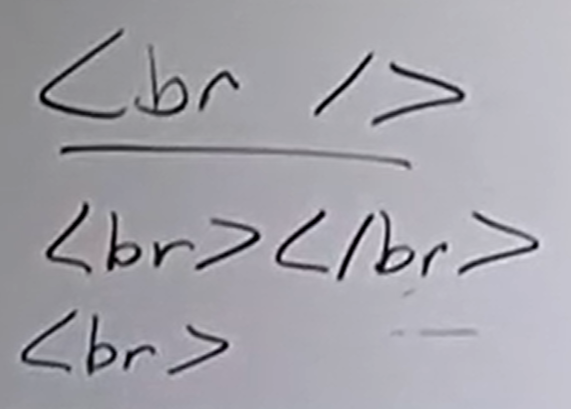 <br />
<br></br>
<br>